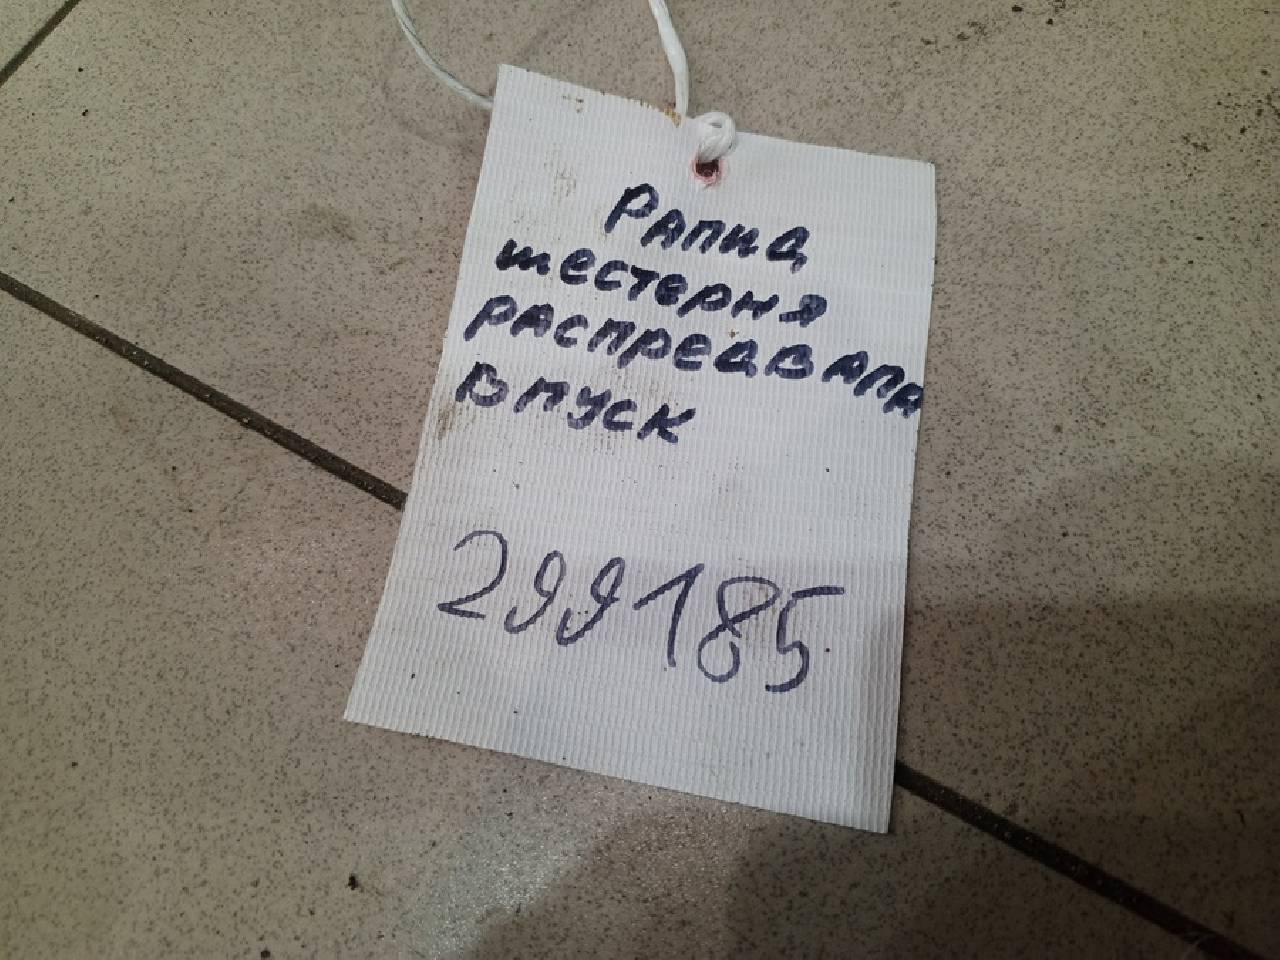 Рапид
шестерня
распредвала
впуск
299185